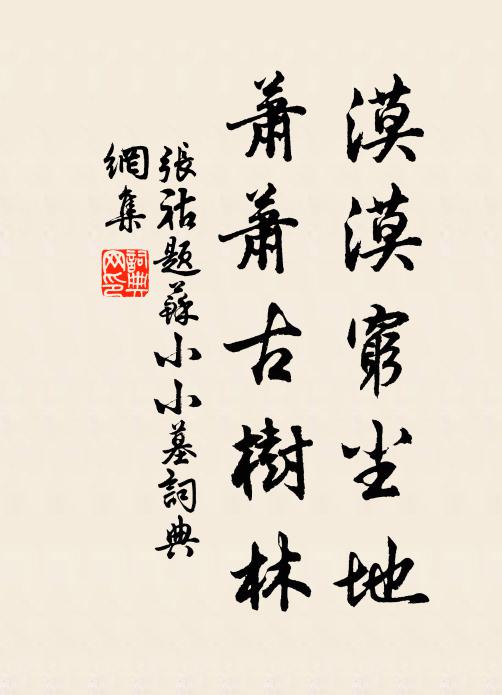 漠漠窮尘地
蕭蕭古樹林
張祜題蘇小小墓詞典
網集
詞典
网印